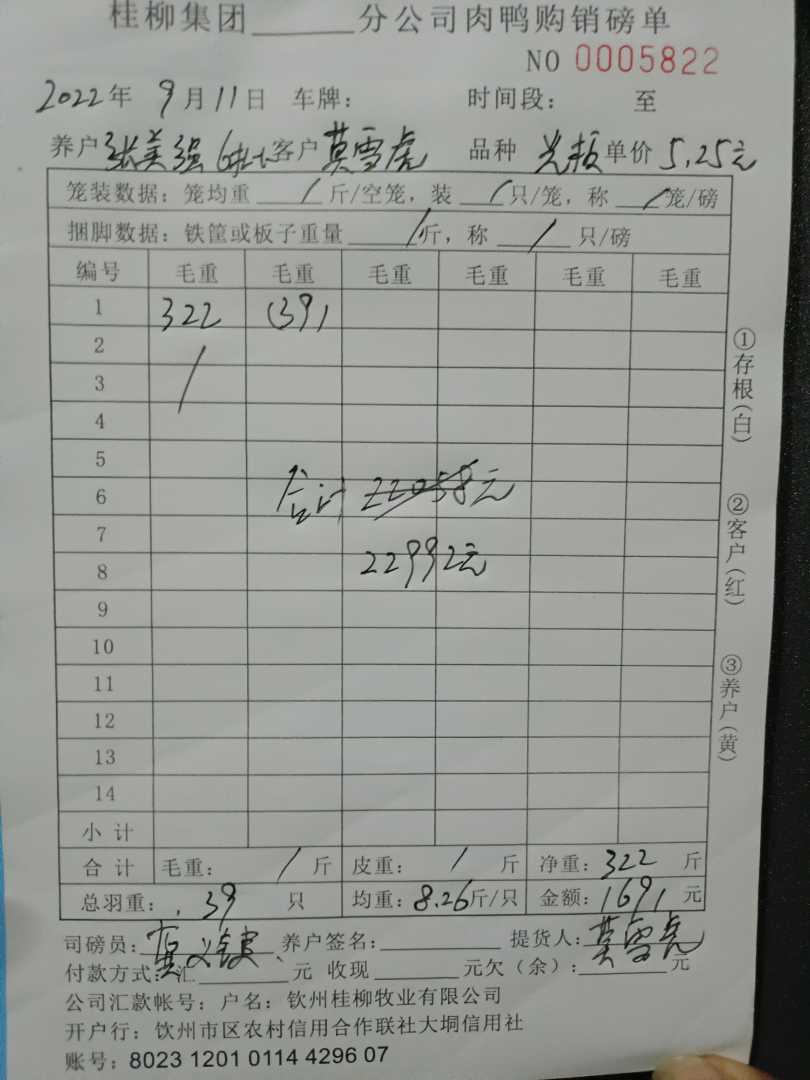 桂柳集团______分公司肉鸭购销磅单
NO 0005822
2022年 9月11日 车牌： 时间段： 至
养户 张美强 客户 莫雪虎 品种 光板 单价 5.25元
笼装数据：笼均重 / 斤/空笼，装 / 只/笼，称 / 笼/磅
捆脚数据：铁筐或板子重量 / 斤，称 / 只/磅
编号 毛重 毛重 毛重 毛重 毛重 毛重
1 322 (39)
2
3 /
4
5
6 合计 22058元
7
8 22992元
9
10
11
12
13
14
小计
合计 毛重： / 斤 皮重： / 斤 净重：322 斤
总羽重：39 只 均重：8.26斤/只 金额：1691元
司磅员：莫 养户签名： 提货人：莫雪虎
付款方式：汇______元 收现______元欠（余）：______元
公司汇款帐号：户名：钦州桂柳牧业有限公司
开户行：钦州市区农村信用合作联社大垌信用社
账号：8023 1201 0114 4296 07
①存根(白)
②客户(红)
③养户(黄)